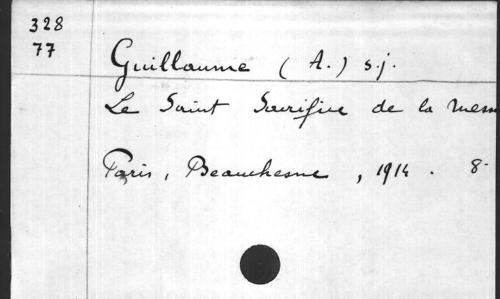 328
77
Guillaume (A.) s.j.
Le Saint Sacrifice de la messe
Paris, Beauchesne, 1914. 8-